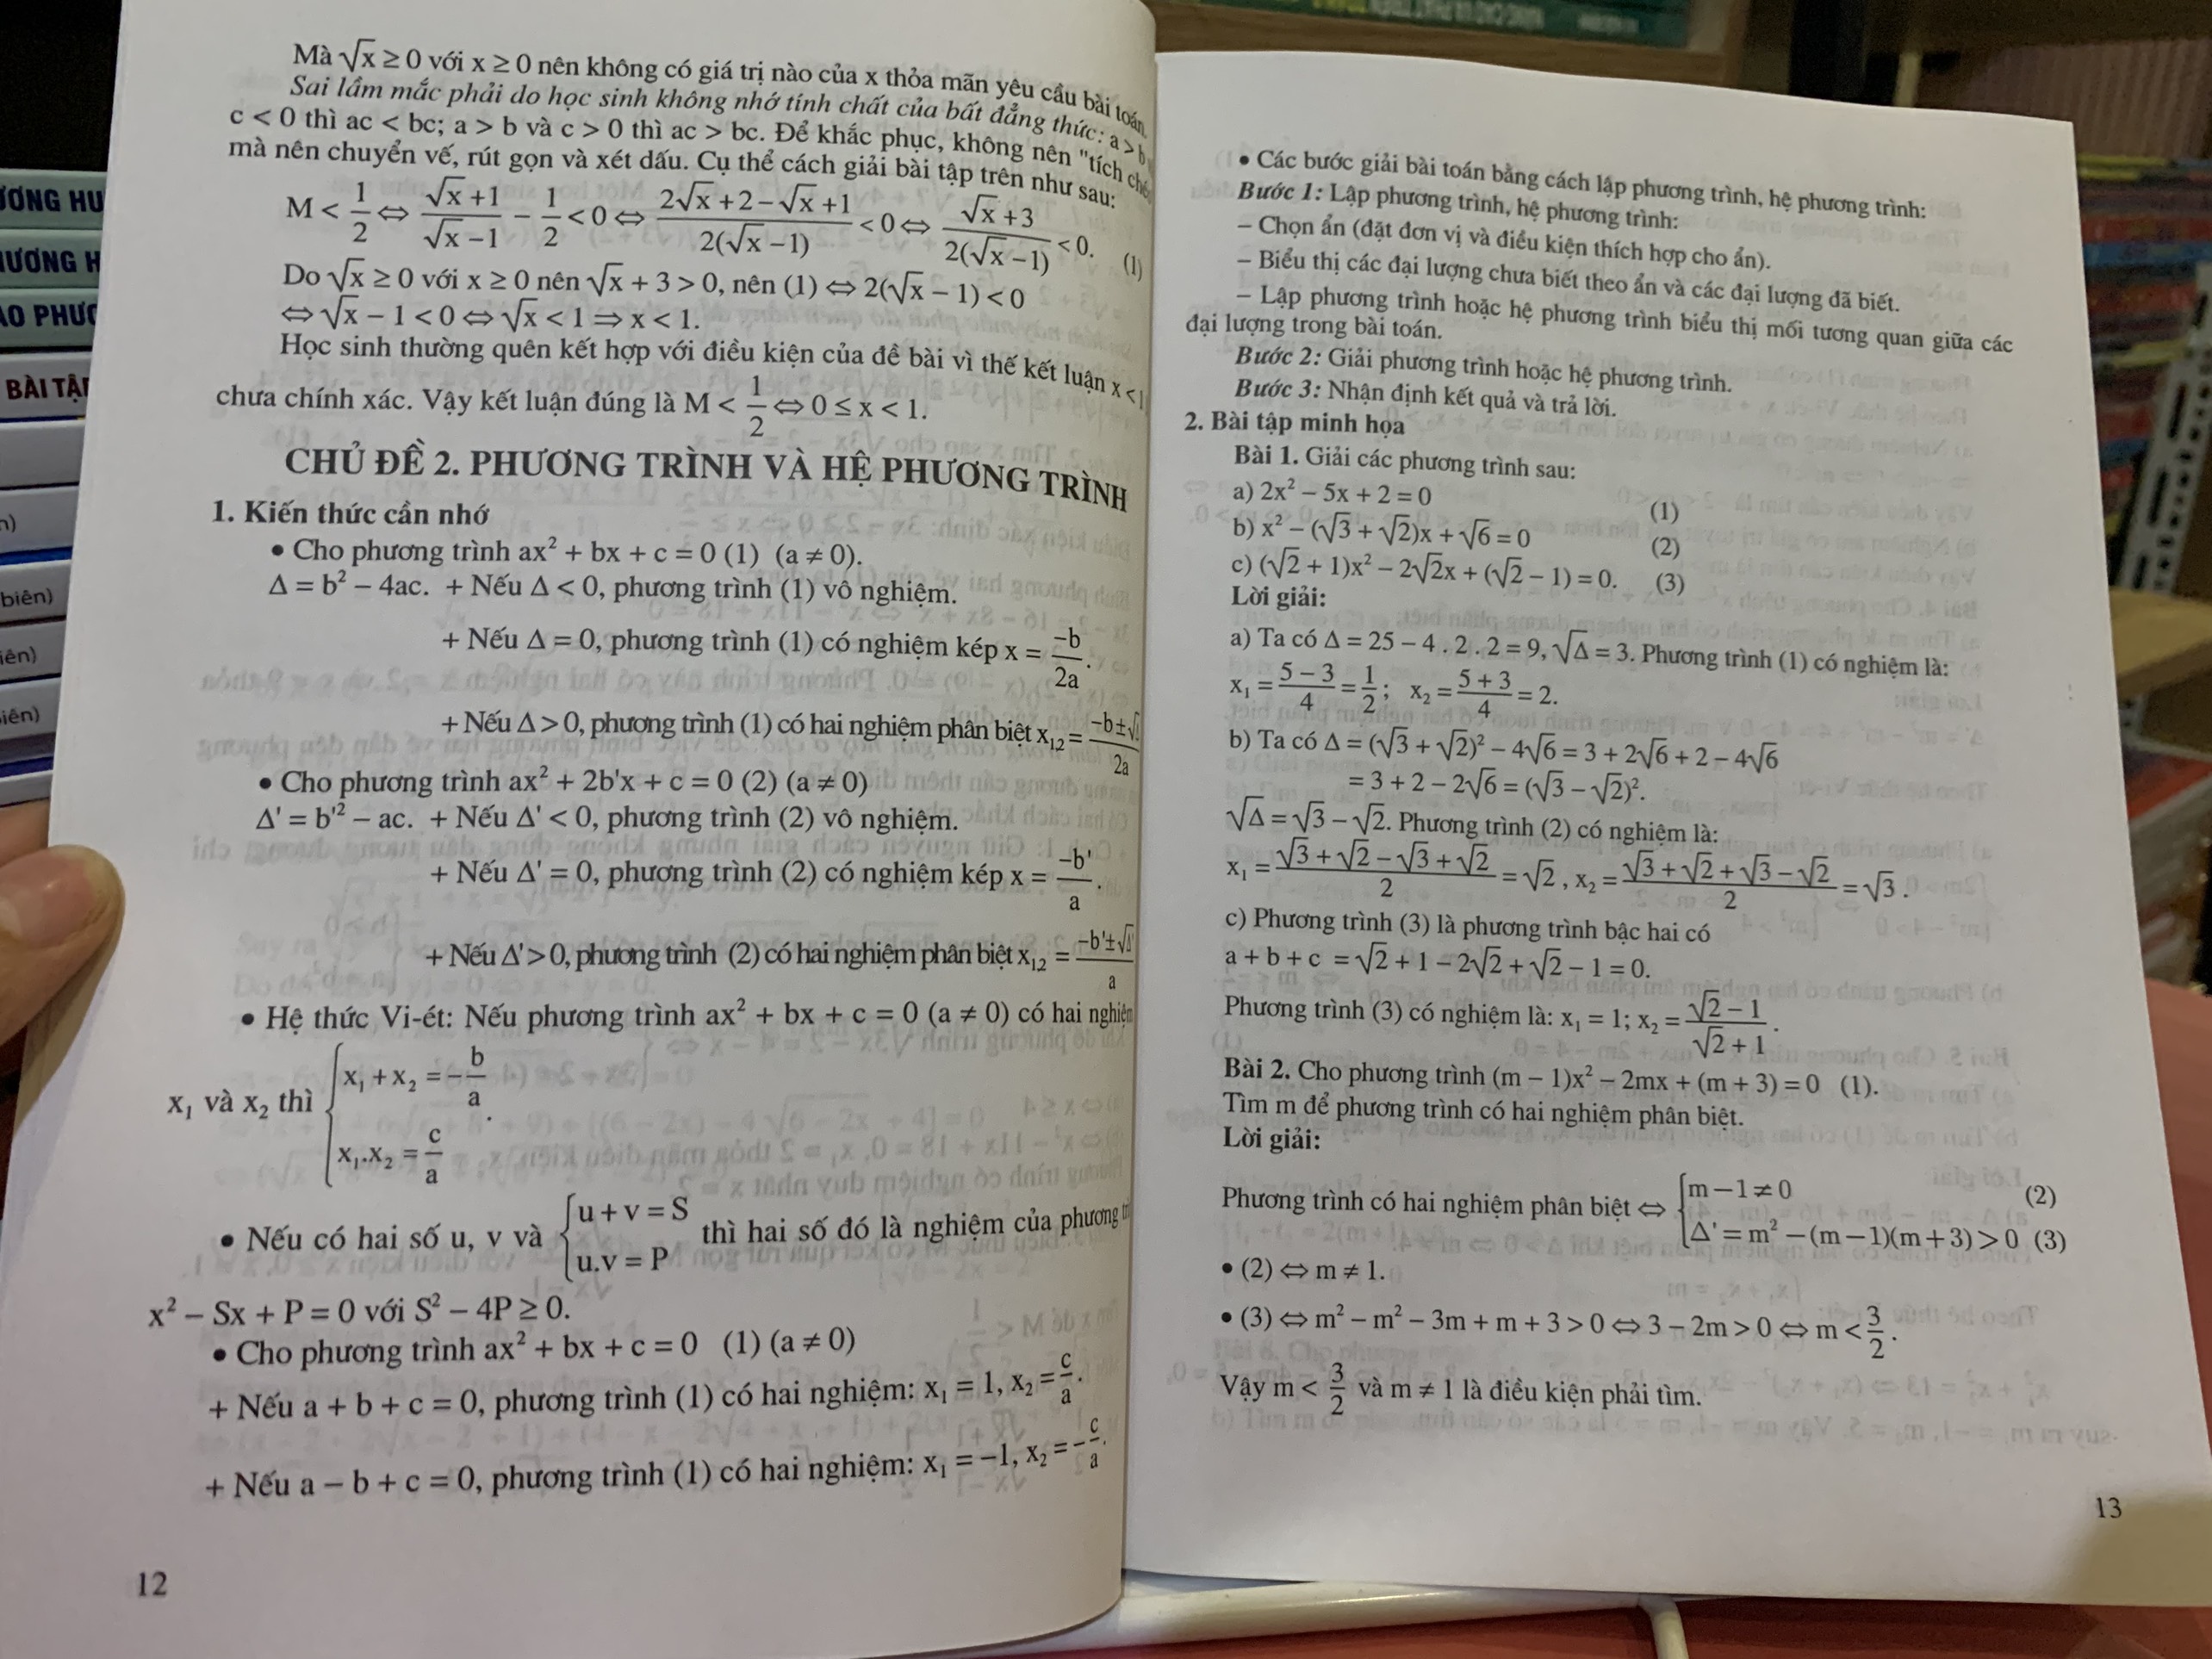 ƯƠNG HU
HƯƠNG H
ÁO PHƯƠ
BÀI TẬP
n)
biên)
iên)
iên)
Mà √x ≥ 0 với x ≥ 0 nên không có giá trị nào của x thỏa mãn yêu cầu bài toán.
Sai lầm mắc phải do học sinh không nhớ tính chất của bất đẳng thức: a > b
c < 0 thì ac < bc; a > b và c > 0 thì ac > bc. Để khắc phục, không nên "tích ché
mà nên chuyển vế, rút gọn và xét dấu. Cụ thể cách giải bài tập trên như sau:
M < 1/2 ⇔ (√x + 1)/(√x − 1) − 1/2 < 0 ⇔ (2√x + 2 − √x + 1)/(2(√x − 1)) < 0 ⇔ (√x + 3)/(2(√x − 1)) < 0. (1)
Do √x ≥ 0 với x ≥ 0 nên √x + 3 > 0, nên (1) ⇔ 2(√x − 1) < 0
⇔ √x − 1 < 0 ⇔ √x < 1 ⇒ x < 1.
Học sinh thường quên kết hợp với điều kiện của đề bài vì thế kết luận x < 1
chưa chính xác. Vậy kết luận đúng là M < 1/2 ⇔ 0 ≤ x < 1.
CHỦ ĐỀ 2. PHƯƠNG TRÌNH VÀ HỆ PHƯƠNG TRÌNH
1. Kiến thức cần nhớ
• Cho phương trình ax² + bx + c = 0 (1) (a ≠ 0).
Δ = b² − 4ac. + Nếu Δ < 0, phương trình (1) vô nghiệm.
+ Nếu Δ = 0, phương trình (1) có nghiệm kép x = −b/2a.
+ Nếu Δ > 0, phương trình (1) có hai nghiệm phân biệt x₁,₂ = (−b ± √)/2a
• Cho phương trình ax² + 2b'x + c = 0 (2) (a ≠ 0)
Δ' = b'² − ac. + Nếu Δ' < 0, phương trình (2) vô nghiệm.
+ Nếu Δ' = 0, phương trình (2) có nghiệm kép x = −b'/a.
+ Nếu Δ' > 0, phương trình (2) có hai nghiệm phân biệt x₁,₂ = (−b' ± √Δ')/a
• Hệ thức Vi-ét: Nếu phương trình ax² + bx + c = 0 (a ≠ 0) có hai nghiệm
x₁ và x₂ thì { x₁ + x₂ = −b/a
x₁.x₂ = c/a.
• Nếu có hai số u, v và { u + v = S
u.v = P thì hai số đó là nghiệm của phương
x² − Sx + P = 0 với S² − 4P ≥ 0.
• Cho phương trình ax² + bx + c = 0 (1) (a ≠ 0)
+ Nếu a + b + c = 0, phương trình (1) có hai nghiệm: x₁ = 1, x₂ = c/a.
+ Nếu a − b + c = 0, phương trình (1) có hai nghiệm: x₁ = −1, x₂ = −c/a.
12
• Các bước giải bài toán bằng cách lập phương trình, hệ phương trình:
Bước 1: Lập phương trình, hệ phương trình:
– Chọn ẩn (đặt đơn vị và điều kiện thích hợp cho ẩn).
– Biểu thị các đại lượng chưa biết theo ẩn và các đại lượng đã biết.
– Lập phương trình hoặc hệ phương trình biểu thị mối tương quan giữa các
đại lượng trong bài toán.
Bước 2: Giải phương trình hoặc hệ phương trình.
Bước 3: Nhận định kết quả và trả lời.
2. Bài tập minh họa
Bài 1. Giải các phương trình sau:
a) 2x² − 5x + 2 = 0 (1)
b) x² − (√3 + √2)x + √6 = 0 (2)
c) (√2 + 1)x² − 2√2x + (√2 − 1) = 0. (3)
Lời giải:
a) Ta có Δ = 25 − 4 . 2 . 2 = 9, √Δ = 3. Phương trình (1) có nghiệm là:
x₁ = (5 − 3)/4 = 1/2; x₂ = (5 + 3)/4 = 2.
b) Ta có Δ = (√3 + √2)² − 4√6 = 3 + 2√6 + 2 − 4√6
= 3 + 2 − 2√6 = (√3 − √2)².
√Δ = √3 − √2. Phương trình (2) có nghiệm là:
x₁ = (√3 + √2 − √3 + √2)/2 = √2, x₂ = (√3 + √2 + √3 − √2)/2 = √3.
c) Phương trình (3) là phương trình bậc hai có
a + b + c = √2 + 1 − 2√2 + √2 − 1 = 0.
Phương trình (3) có nghiệm là: x₁ = 1; x₂ = (√2 − 1)/(√2 + 1).
Bài 2. Cho phương trình (m − 1)x² − 2mx + (m + 3) = 0 (1).
Tìm m để phương trình có hai nghiệm phân biệt.
Lời giải:
Phương trình có hai nghiệm phân biệt ⇔ { m − 1 ≠ 0 (2)
Δ' = m² − (m − 1)(m + 3) > 0 (3)
• (2) ⇔ m ≠ 1.
• (3) ⇔ m² − m² − 3m + m + 3 > 0 ⇔ 3 − 2m > 0 ⇔ m < 3/2.
Vậy m < 3/2 và m ≠ 1 là điều kiện phải tìm.
13